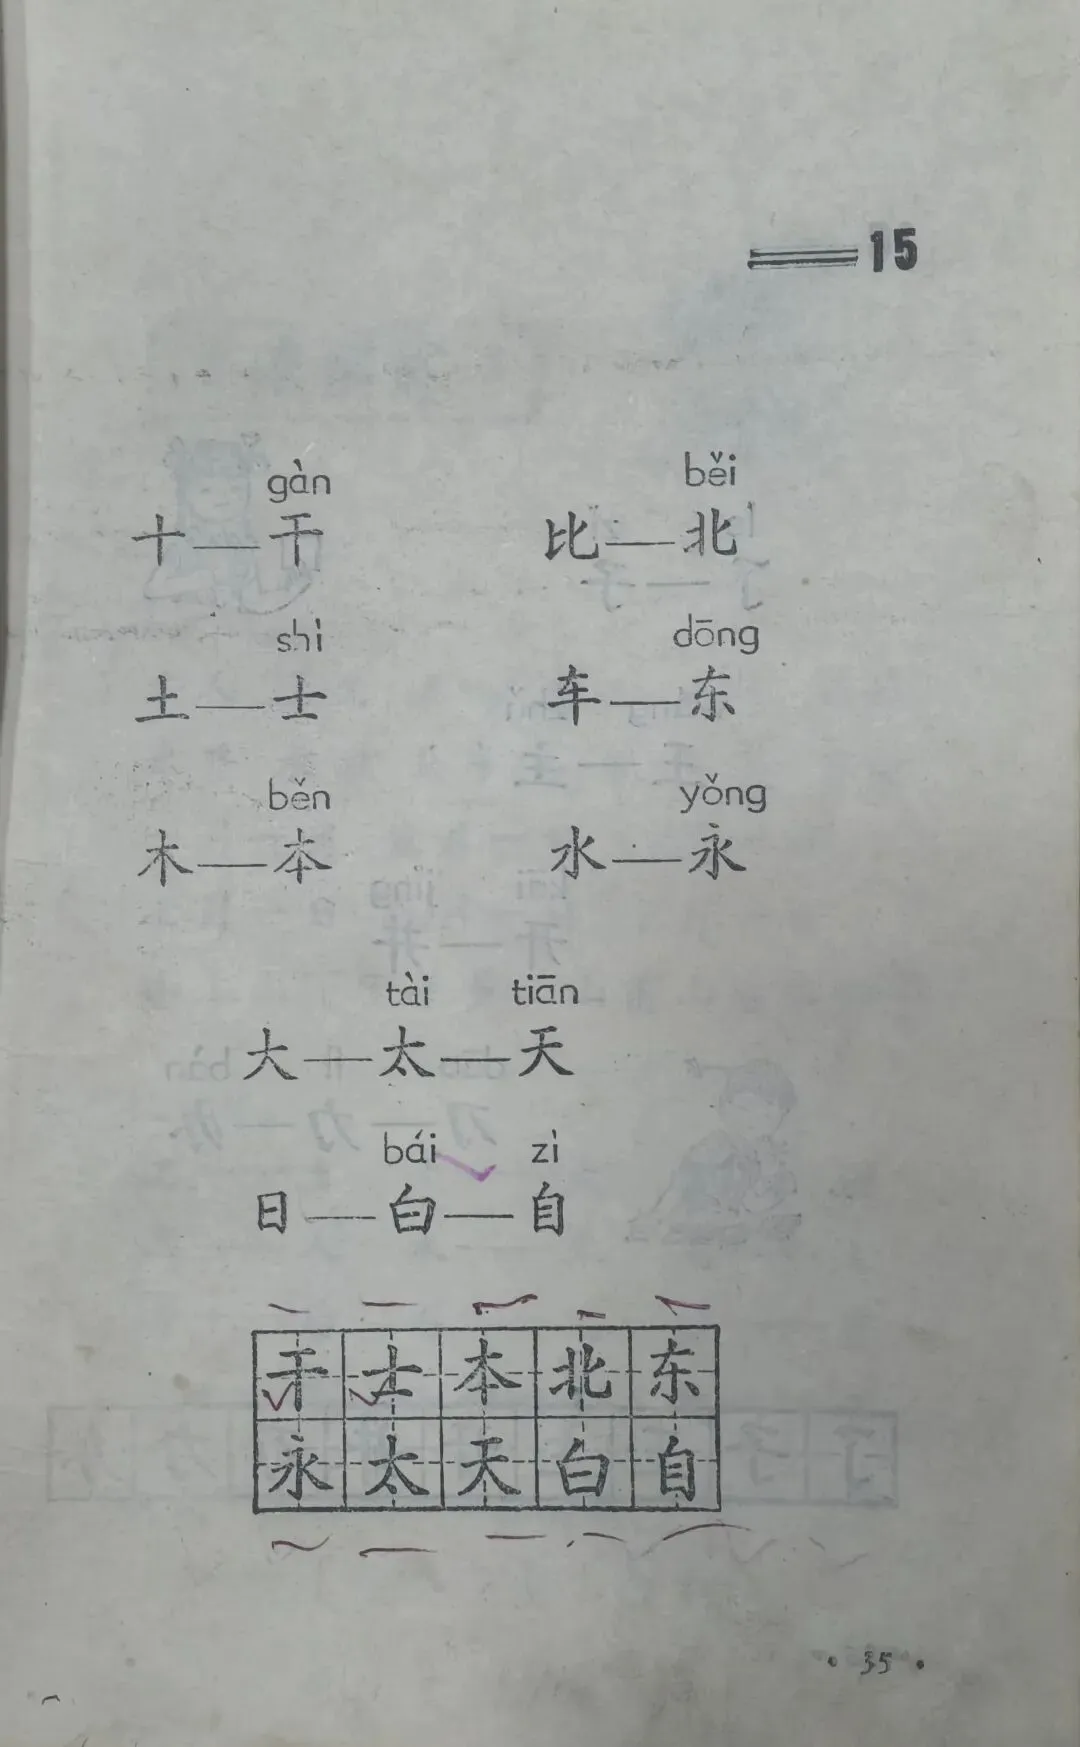 15
gàn běi
十—干 比—北
shì dōng
土—士 车—东
běn yǒng
木—本 水—永
tài tiān
大—太—天
bái zì
日—白—自
干士本北东
永太天白自
·35·